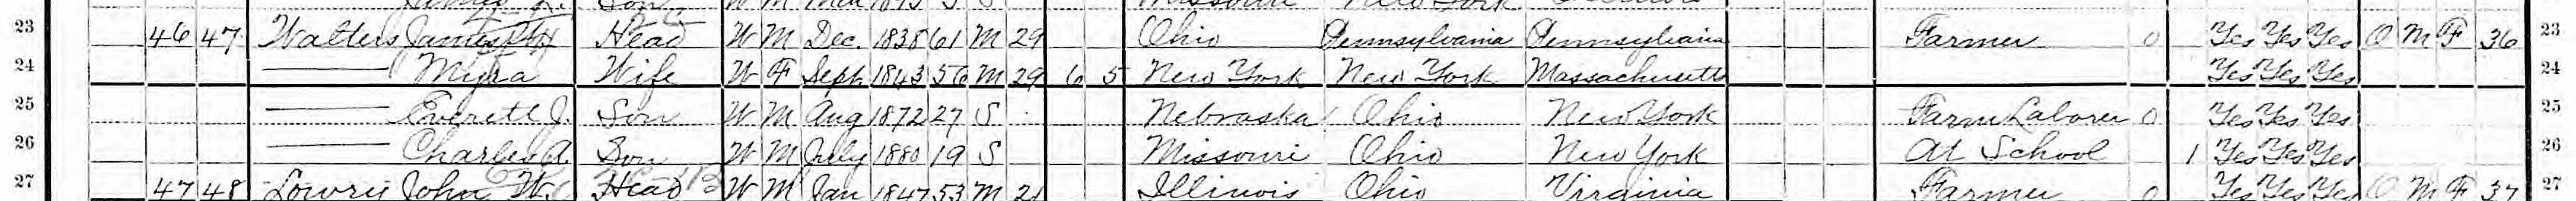 Son W M 1873 S Missouri New York
23 46 47 Walters James H Head W M Dec. 1838 61 M 29 Ohio Pennsylvania Pennsylvania Farmer 0 Yes Yes Yes O M F 36 23
24 — Myra Wife W F Sept 1843 56 M 29 6 5 New York New York Massachusetts Yes Yes Yes 24
25 — Everett J. Son W M Aug 1872 27 S Nebraska Ohio New York Farm Laborer 0 Yes Yes Yes 25
26 — Charles A. Son W M July 1880 19 S Missouri Ohio New York At School 1 Yes Yes Yes 26
27 47 48 Lowry John W. Head W M Jan 1847 53 M 21 Illinois Ohio Virginia Farmer 0 Yes Yes Yes O M F 37 27